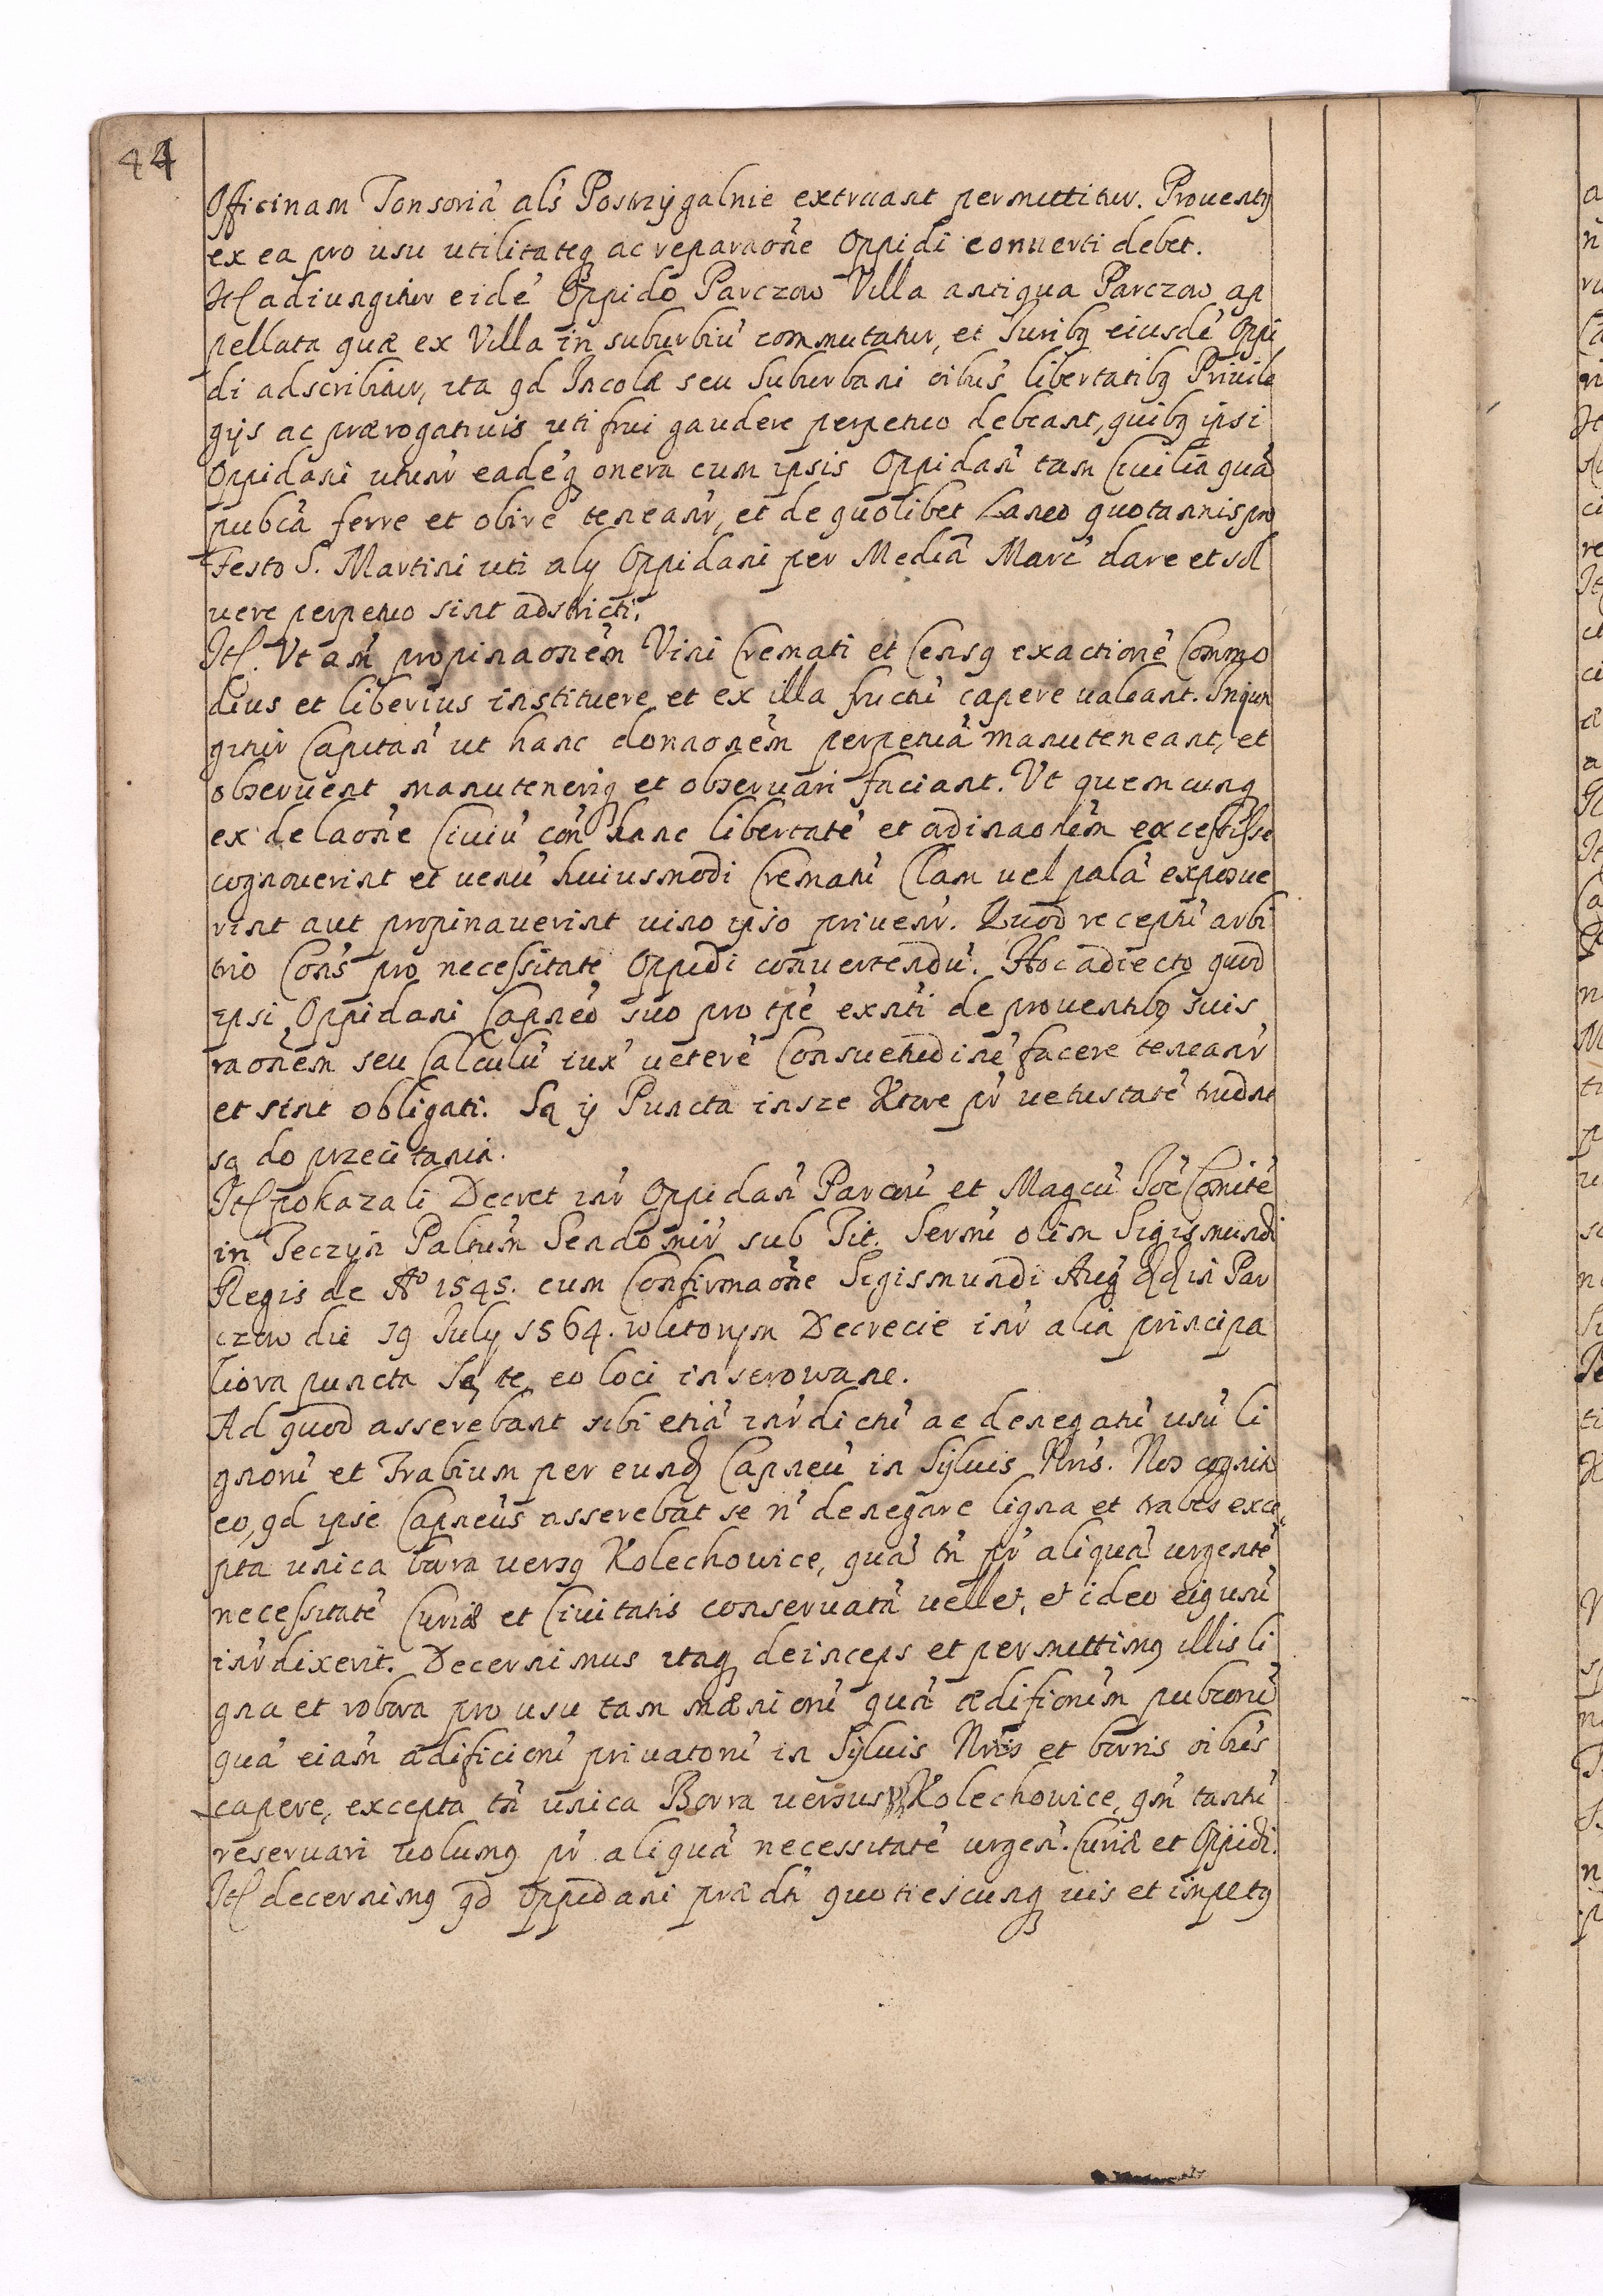 44
Officinam Tonsoriá als Postrzygalnie extruant permittitur. Prouentȝ
ex ea pro usu utilitateqȝ ac reparaoñe Oppidi conuerti debet.
Itl adiungitur eidé Oppido Parczow Villa antiqua Parczow ap
pellata quæ ex Villa in suburbiú commutatur, et Juribȝ eiusdé Oppi
di adscribitur, ita qd Incolæ seu Suburbani oibus libertatibȝ Priuile
gijs ac prærogatiuis uti frui gaudere perpetuo debeant, quibȝ ipsi
Oppidani utunr eadéqȝ onera cum ipsis Oppidań tam Ciuilia quá
pubcá ferre et obire teneanr, et de quolibet Laneo quotannis pro
Festo S. Martini uti alij Oppidani per Mediá Marć dare et sol
uere perpetuo sint adstricti.
Itl. Ut am̃ propinaoném Vini Cremati et Censȝ exactioné Commo
dius et liberius instituere et ex illa fructú capere ualeant. Iniun
gitur Capitań ut hanc donaoném perpetuá manuteneant, et
obseruent manuteneriqȝ et obseruari faciant. Ut quemcunqȝ
ex delaoñe Ciuiú coñ hanc libertaté et ordinaoném excessisse
cognouerint et uenú huiusmodi Crematú Clam uel palá exposue
rint aut propinauerint uino ipso priuenr. Quod receptú arbi
trio Cons pro necessitate Oppidi conuertendú. Hoc adiecto quod
ipsi Oppidani Capneo suo pro tpé exnti de prouentibȝ suis
raoném seu Calculú iux ueteré Consuetudiné facere teneanr
et sint obligati. Są ÿ Puncta insze Ktore pr uetustaté trudne
są do przecitania.
Itl pokazali Decret inr Oppidań Parceń et Magcú Joé Comité
in Teczyn Paltum Sendomir sub Tit. Sermi olim Sigismundi
Regis de Aº 1545. cum Confirmaoñe Sigismundi Augȝ dd in Par
czow die 19 July 1564. wktorym Decrecie inr alia principa
liora puncta Są te eo loci inserowane.
Ad quod asserebant sibi etiá inrdictú ac denegatú usú li
gnorú et Trabium per eund Capneú in Syluis Nris. Nos cognito
eo, qd ipse Capneus asserebat se ń denegare ligna et trabes exce
pta unica borra uersȝ Kolechowice, quá tń pr aliquá urgenté
necessitaté Curiæ et Ciuitatis conseruatá uellet, et ideo eiqȝ usú
inrdixerit. Decernimus itaqȝ deinceps et permittimȝ illis li
gna et robora pro usu tam mœniorú quá ædificiorum pubcorú
quá eiam ædificiorú priuatorú in Syluis Nris et borris oibus
capere, excepta tń unica Borra uersus Kolechowice, qm tantú
reseruari uolumȝ pr aliquá necessitaté urgeń. Curiæ et Oppidi.
Itl decernimȝ qd Oppidani prædti quotiescunqȝ uis et impetȝ